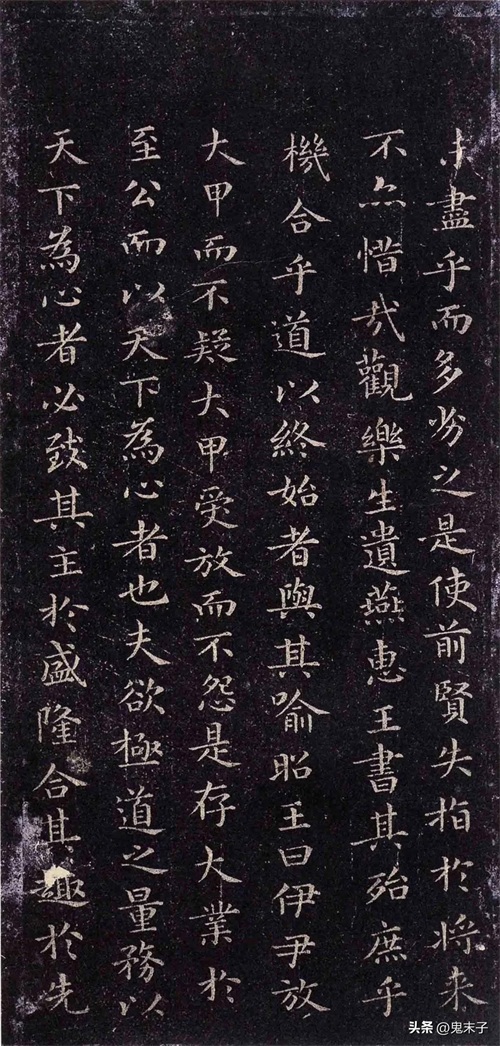 未盡乎而多劣之是使前賢失指於將来
不亦惜哉觀樂生遺燕惠王書其殆庶乎
機合乎道以終始者與其喻昭王曰伊尹放
大甲而不疑大甲受放而不怨是存大業於
至公而以天下為心者也夫欲極道之量務以
天下為心者必致其主於盛隆合其趣於先
头条@鬼末子